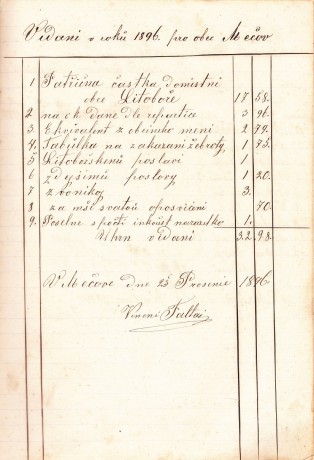 Vidani v roků 1896. pro obec Mečov
1 Patřična častka domistni
obce Litoboře 17 58.
2 na ck. daně dle repartice 3 96.
3 Ekvivalent z obecniho meni 2 79.
4. Tabulka na zakazani žebroty 1 75.
5 Litobořskemů poslovi 1
6 zdyšimů poslovy 1 20.
7 zvonikoj 3.
8 za mši svatou oposvicáni 70.
9. Poselne s počti inkoust 1.
Uhrn vidani 32.98.
V Mečove dne 25 Prosence 1896
Vincenc